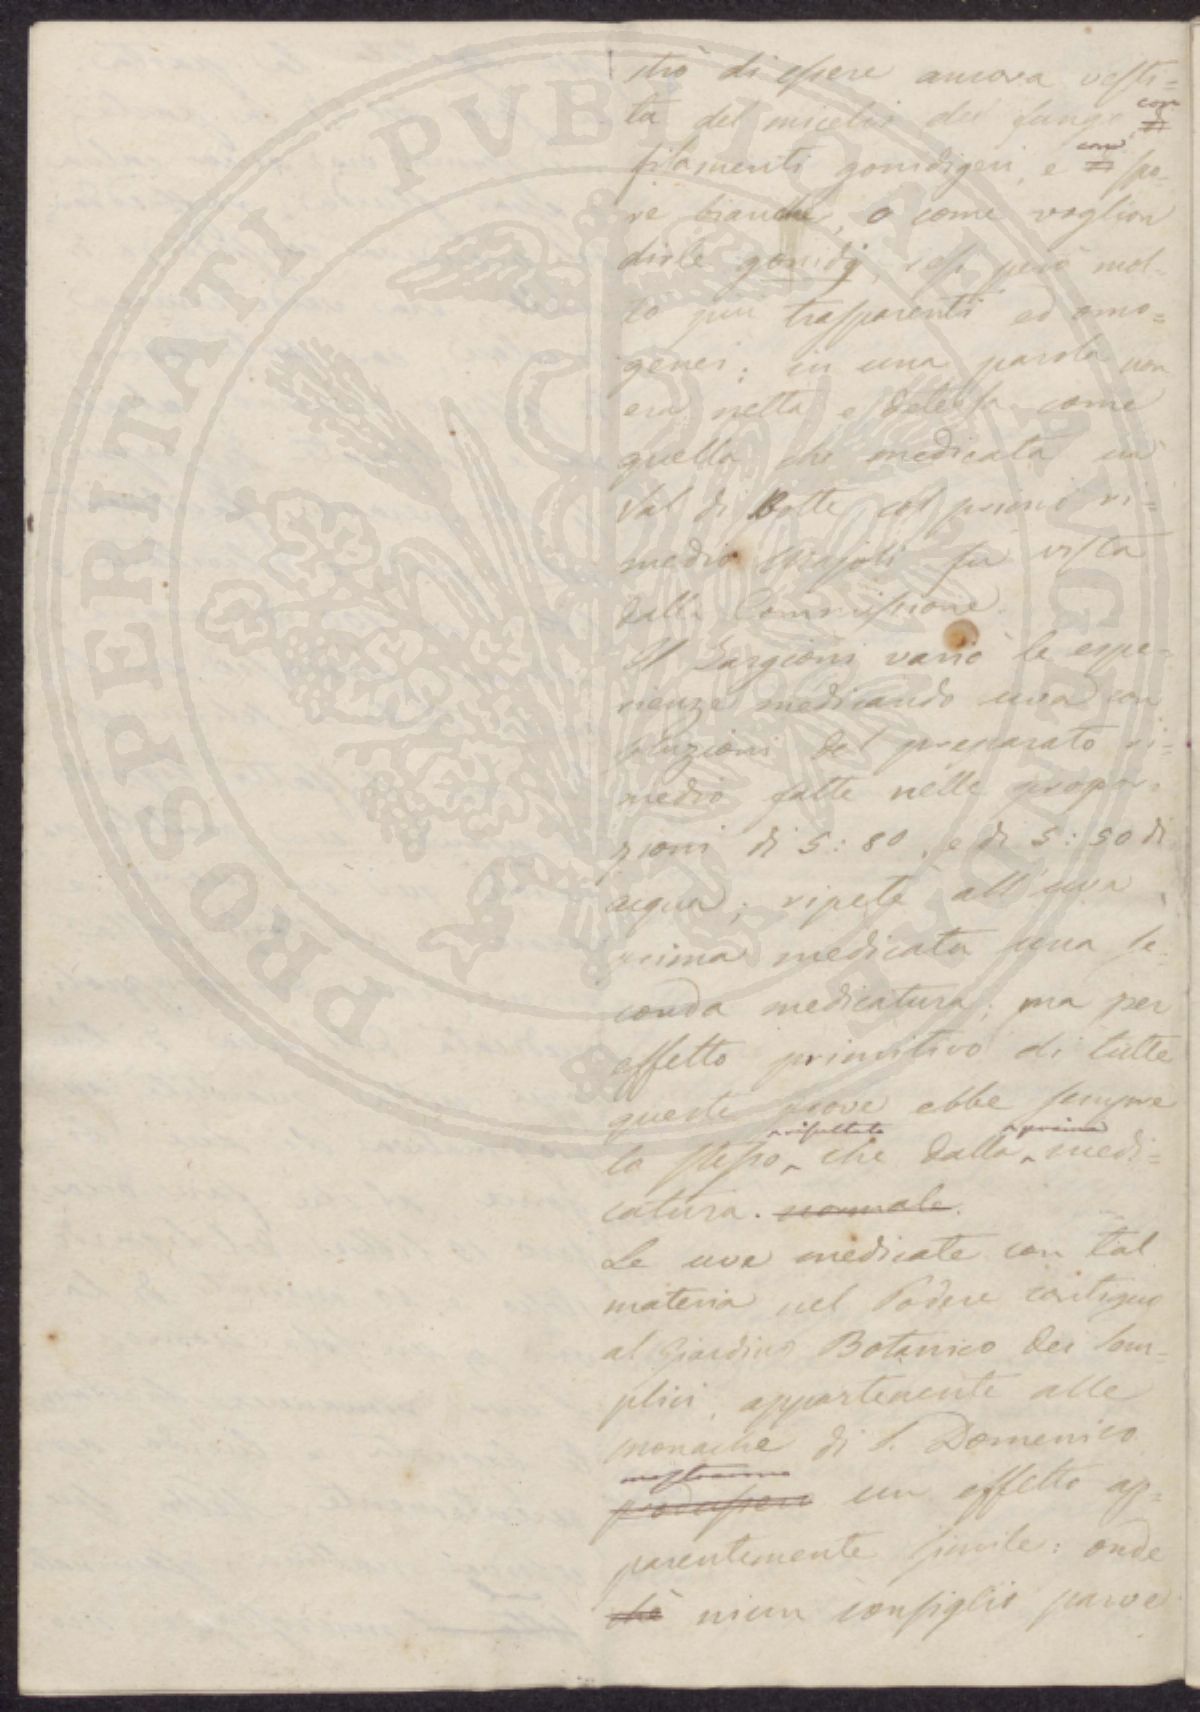 strò di essere ancora vesti-
ta del micelio del fungo, con
filamenti gonidigeri, e con spo-
re bianche, o come voglion
dirle gonidj, resi però mol-
to più trasparenti ed omo=
genei; in una parola non
era netta e detersa come
quella che medicata in
Val di Botte col primo ri-
medio Majoli fu vista
dalla Commissione.
Il Targioni variò le espe-
rienze medicando uva con
soluzioni del preparato ri-
medio fatte nelle propor-
zioni di 5: 80, e di 5: 50 di
acqua; ripetè all'uva
prima medicata una se-
conda medicatura; ma per
effetto primitivo di tutte
queste prove ebbe sempre
lo stesso risultato che dalla prima medi=
catura. normale.
Le uve medicate con tal
materia nel Podere contiguo
al Giardino Botanico dei Sem-
plici, appartenente alle
monache di S. Domenico
mostrarono
un effetto ap-
parentemente simile: onde
chè niun consiglio parve
PROSPERITATI PVBLICAE AVGENDAE